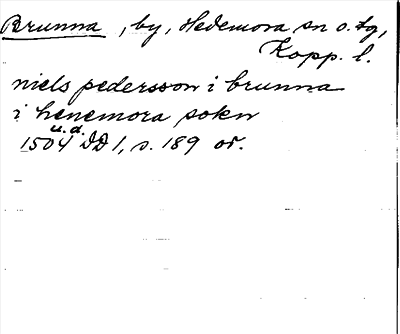 Brunna, by, Hedemora sn o. tg,
Kopp. l.
niels pedersson i brunna
i henemora sokn
u.d.
1504 DD 1, s. 189 or.